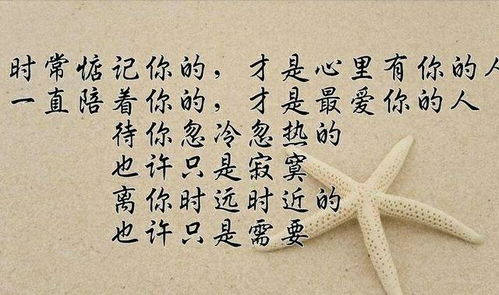 时常惦记你的，才是心里有你的人
一直陪着你的，才是最爱你的人
待你忽冷忽热的
也许只是寂寞
离你时远时近的
也许只是需要